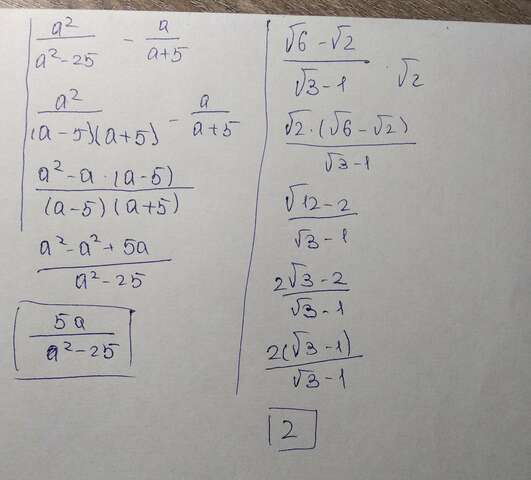 a²/(a²-25) - a/(a+5)
a²/((a-5)(a+5)) - a/(a+5)
(a²-a·(a-5))/((a-5)(a+5))
(a²-a²+5a)/(a²-25)
5a/(a²-25)
(√6-√2)/(√3-1) · √2
(√2·(√6-√2))/(√3-1)
(√12-2)/(√3-1)
(2√3-2)/(√3-1)
(2(√3-1))/(√3-1)
2